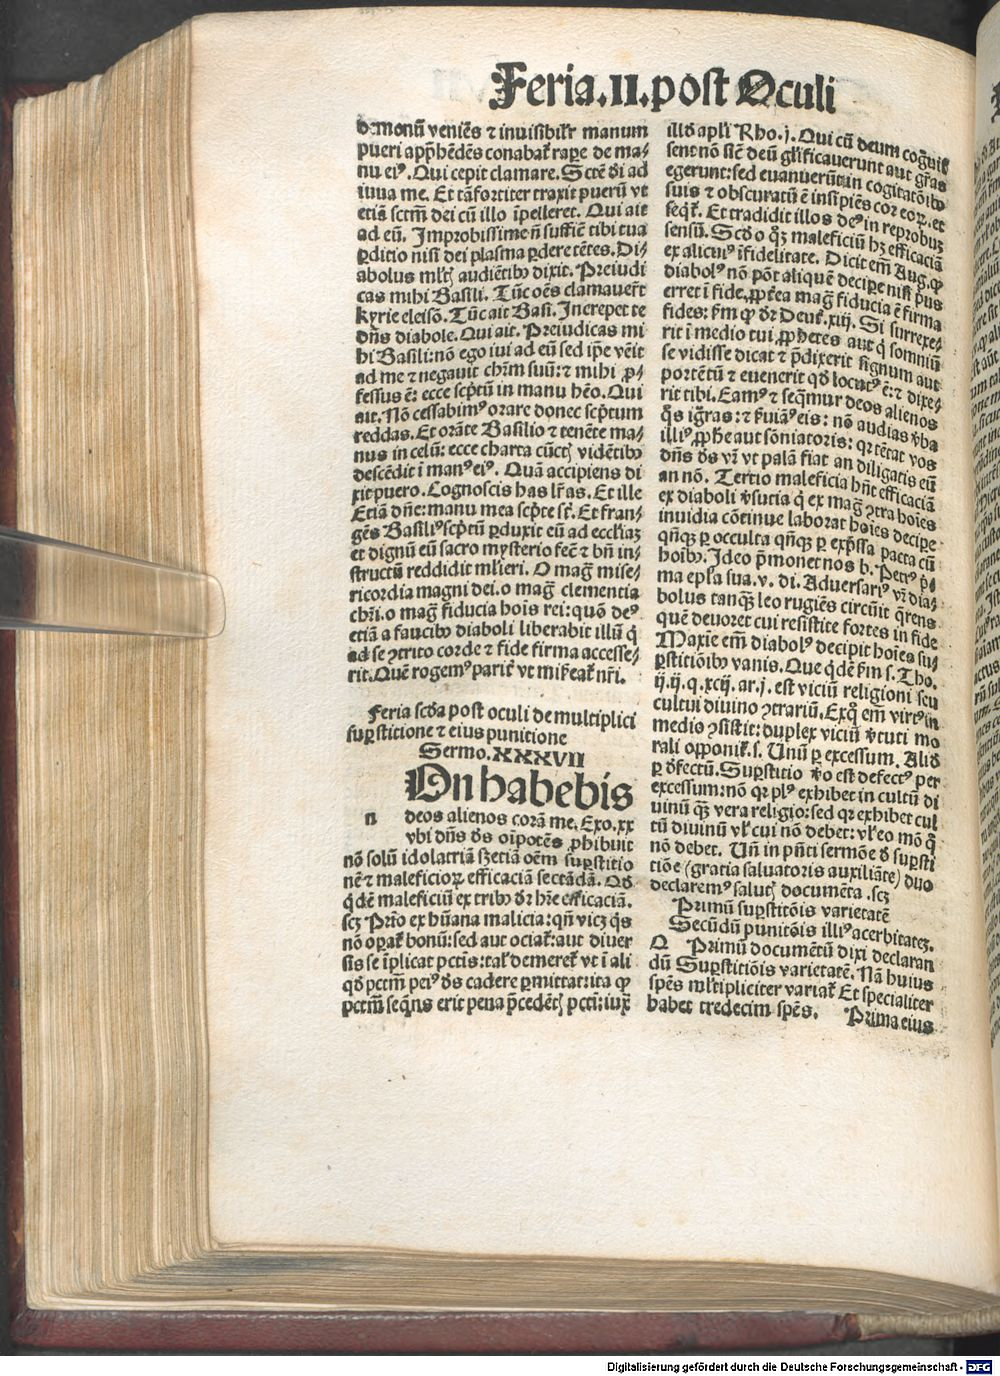 Feria.II.post Oculi
demonū veniēs ⁊ inuisibilr̄ manum
pueri app̄hēdēs conabat̄ rape de ma-
nu eiꝰ. Qui cepit clamare. Sctē dī ad
iuua me. Et tāfortiter traxit puerū vt
etiā sctm̄ dei cū illo īpelleret. Qui ait
ad eū. Improbissime n̄ suffic̄ tibi tua
ꝑditio nisi dei plasma ꝑdere tētes. Di-
abolus mltꝭ audiētibꝰ dixit. Preiudi
cas mihi Basili. Tūc oēs clamauer̄t
kyrie eleisō. Tūc ait Basi. Increpet te
dn̄s diabole. Qui ait. Preiudicas mi
hi Basili: nō ego iui ad eū sed ip̄e vēit
ad me ⁊ negauit chr̄m suū: ⁊ mihi ꝓ-
fessus ē: ecce scptū in manu hēo. Qui
ait. Nō cessabimꝰ orare donec scptum
reddas. Et orāte Basilio ⁊ tenēte ma-
nus in celū: ecce charta cūctꝭ vidētibꝰ
descēdit ī manꝰ eiꝰ. Quā accipiens di
xit puero. Cognoscis has lr̄as. Et ille
Etiā dn̄e: manu mea scpte st̄. Et fran-
gēs Basiliꝰ scptū ꝑduxit eū ad eccliaꝫ
et dignū eū sacro mysterio fec̄ ⁊ bn̄ in-
structū reddidit mlieri. O maḡ mise-
ricordia magni dei. o maḡ clementia
chr̄i. o maḡ fiducia hois rei: quō deꝰ
etiā a faucibꝰ diaboli liberabit illū q̇
ad se ꝯtrito corde ⁊ fide firma accesse-
rit. Quē rogemꝰ parit̄ vt misereat̄ nr̄i.
Feria scḋa post oculi de multiplici
suꝑstitione ⁊ eius punitione
Sermo.XXXVII
On habebis
n deos alienos corā me. Exo. xx
vbi dn̄s ds oīpotēs ꝓhibuit
nō solū idolatriā sꝫ etiā oēm suꝑstitio
nē ⁊ maleficioꝝ efficaciā sectādā. Qḋ
qḋē maleficiū ex tribꝰ dr̄ hr̄e efficaciā.
scꝫ Prīo ex hūana malicia: qn̄ vicꝫ q̇s
nō oꝑat̄ bonū: sed aut ociat̄: aut diuer
sis se īplicat pctīs: tal̄ demeret̄ vt ī ali
qḋ pctm̄ peiꝰ ds cadere ꝑmittat: ita ꝙ
pctm̄ seqn̄s erit pena p̄cedētꝭ pcti: iuxͣ
illḋ apl̄i Rho. j. Qui cū deum cogͦuis
sent nō sic̄ deū gl̄ificauerunt aut gr̄as
egerunt: sed euanuerūt in cogitatōibꝰ
suis ⁊ obscuratū ē insipiēs cor eoꝝ. et
seqt̄. Et tradidit illos deꝰ in reprobuꝫ
sensū. Scḋo qꝫ maleficiū hꝫ efficaciā
ex alicuiꝰ īfidelitate. Dicit em̄ Aug. ꝙ
diabolꝰ nō pōt aliquē decipe nisi pͥus
erret ī fide, ꝓpt̄ea maḡ fiducia ē firma
fides: fm̄ ꝙ dr̄ Deut̄. xiij. Si surrexe-
rit ī medio tui ꝓphetes aut q̇ somniū
se vidisse dicat ⁊ p̄dixerit signum aut
portētū ⁊ euenerit qḋ locutꝰ ē: ⁊ dixe-
rit tibi. Eamꝰ ⁊ seqmur deos alienos
q̇s igͦras: ⁊ ſuiaꝰ eis: nō audias v̄ba
illiꝰ ꝓphe aut sōniatoris: qꝛ tētat vos
dn̄s ds vr̄ vt palā fiat an diligatis eū
an nō. Tertio maleficia hn̄t efficaciā
ex diaboli v̄sutia q̇ ex maḡ ꝯtra hoīes
inuidia cōtinue laborat hoīes decipe
qn̄qꝫ ꝑ occulta qn̄qꝫ ꝑ exp̄ssa pacta cū
hoibꝰ. Ideo p̄monet nos b. Petrꝰ pͥ-
ma epl̄a sua. v. di. Aduersariꝰ vr̄ dia-
bolus tanqꝫ leo rugiēs circūit q̄rens
quē deuoret cui resistite fortes in fide
Maxie em̄ diabolꝰ decipit hoīes su-
ꝑstitiōibꝰ vanis. Que qḋē fm̄ s. Tho.
ij. ij. q. xcij. ar. j. est viciū religioni seu
cultui diuino ꝯtrariū. Ex q̇ em̄ virtꝰ in
medio ꝯsistit: duplex viciū v̄tuti mo
rali opponit̄. s. Unū ꝑ excessum. Aliḋ
ꝑ defectū. Suꝑstitio v̄o est defectꝰ per
excessum: nō qꝛ plꝰ exhibet in cultū di
uinū qꝫ vera religio: sed qꝛ exhibet cul
tū diuinū vl̄ cui nō debet: vl̄ eo mō q̇
nō debet. Un̄ in pn̄ti sermōe ḋ suꝑsti
tiōe (gratia saluatoris auxiliāte) duo
declaremꝰ salutꝭ documēta. scꝫ
Primū suꝑstitōis varietatē
Secūdū punitōis illiꝰ acerbitateꝫ.
Q Primū documētū dixi declaran
dū Suꝑstitiōis varietatē. Nā huius
spēs mltipliciter variat̄ Et specialiter
habet tredecim spēs. Prima eius
Digitalisierung gefördert durch die Deutsche Forschungsgemeinschaft - DFG